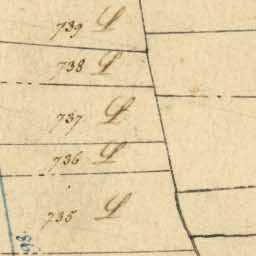 739 L
738 L
737 L
736 L
735 L